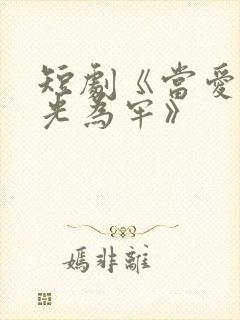 短劇《當愛
光為牢》
媽非離